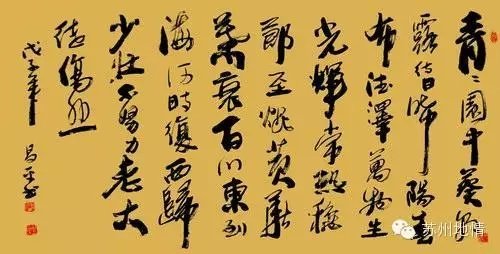 青〻園中葵朝
露待日晞陽春
布德澤萬物生
光輝常恐秋
節至焜黃華
葉衰百川東到
海何時復西歸
少壯不努力老大
徒傷悲
戊子年
苏州地情